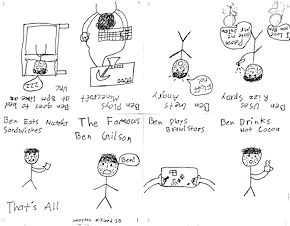 Ben goes to bed
at 8pm like an
Unc
ZZZ
Ben
Plays
Minecraft
Ben Gets
Angry
Ben Uses
Rizz Spray
Please
date me
I Love
Ben Eats Nutella
Sandwiches
The Famous
Ben Gilson
Ben plays
Brawlstars
Ben Drinks
Hot Cocoa
Ben!
That's All